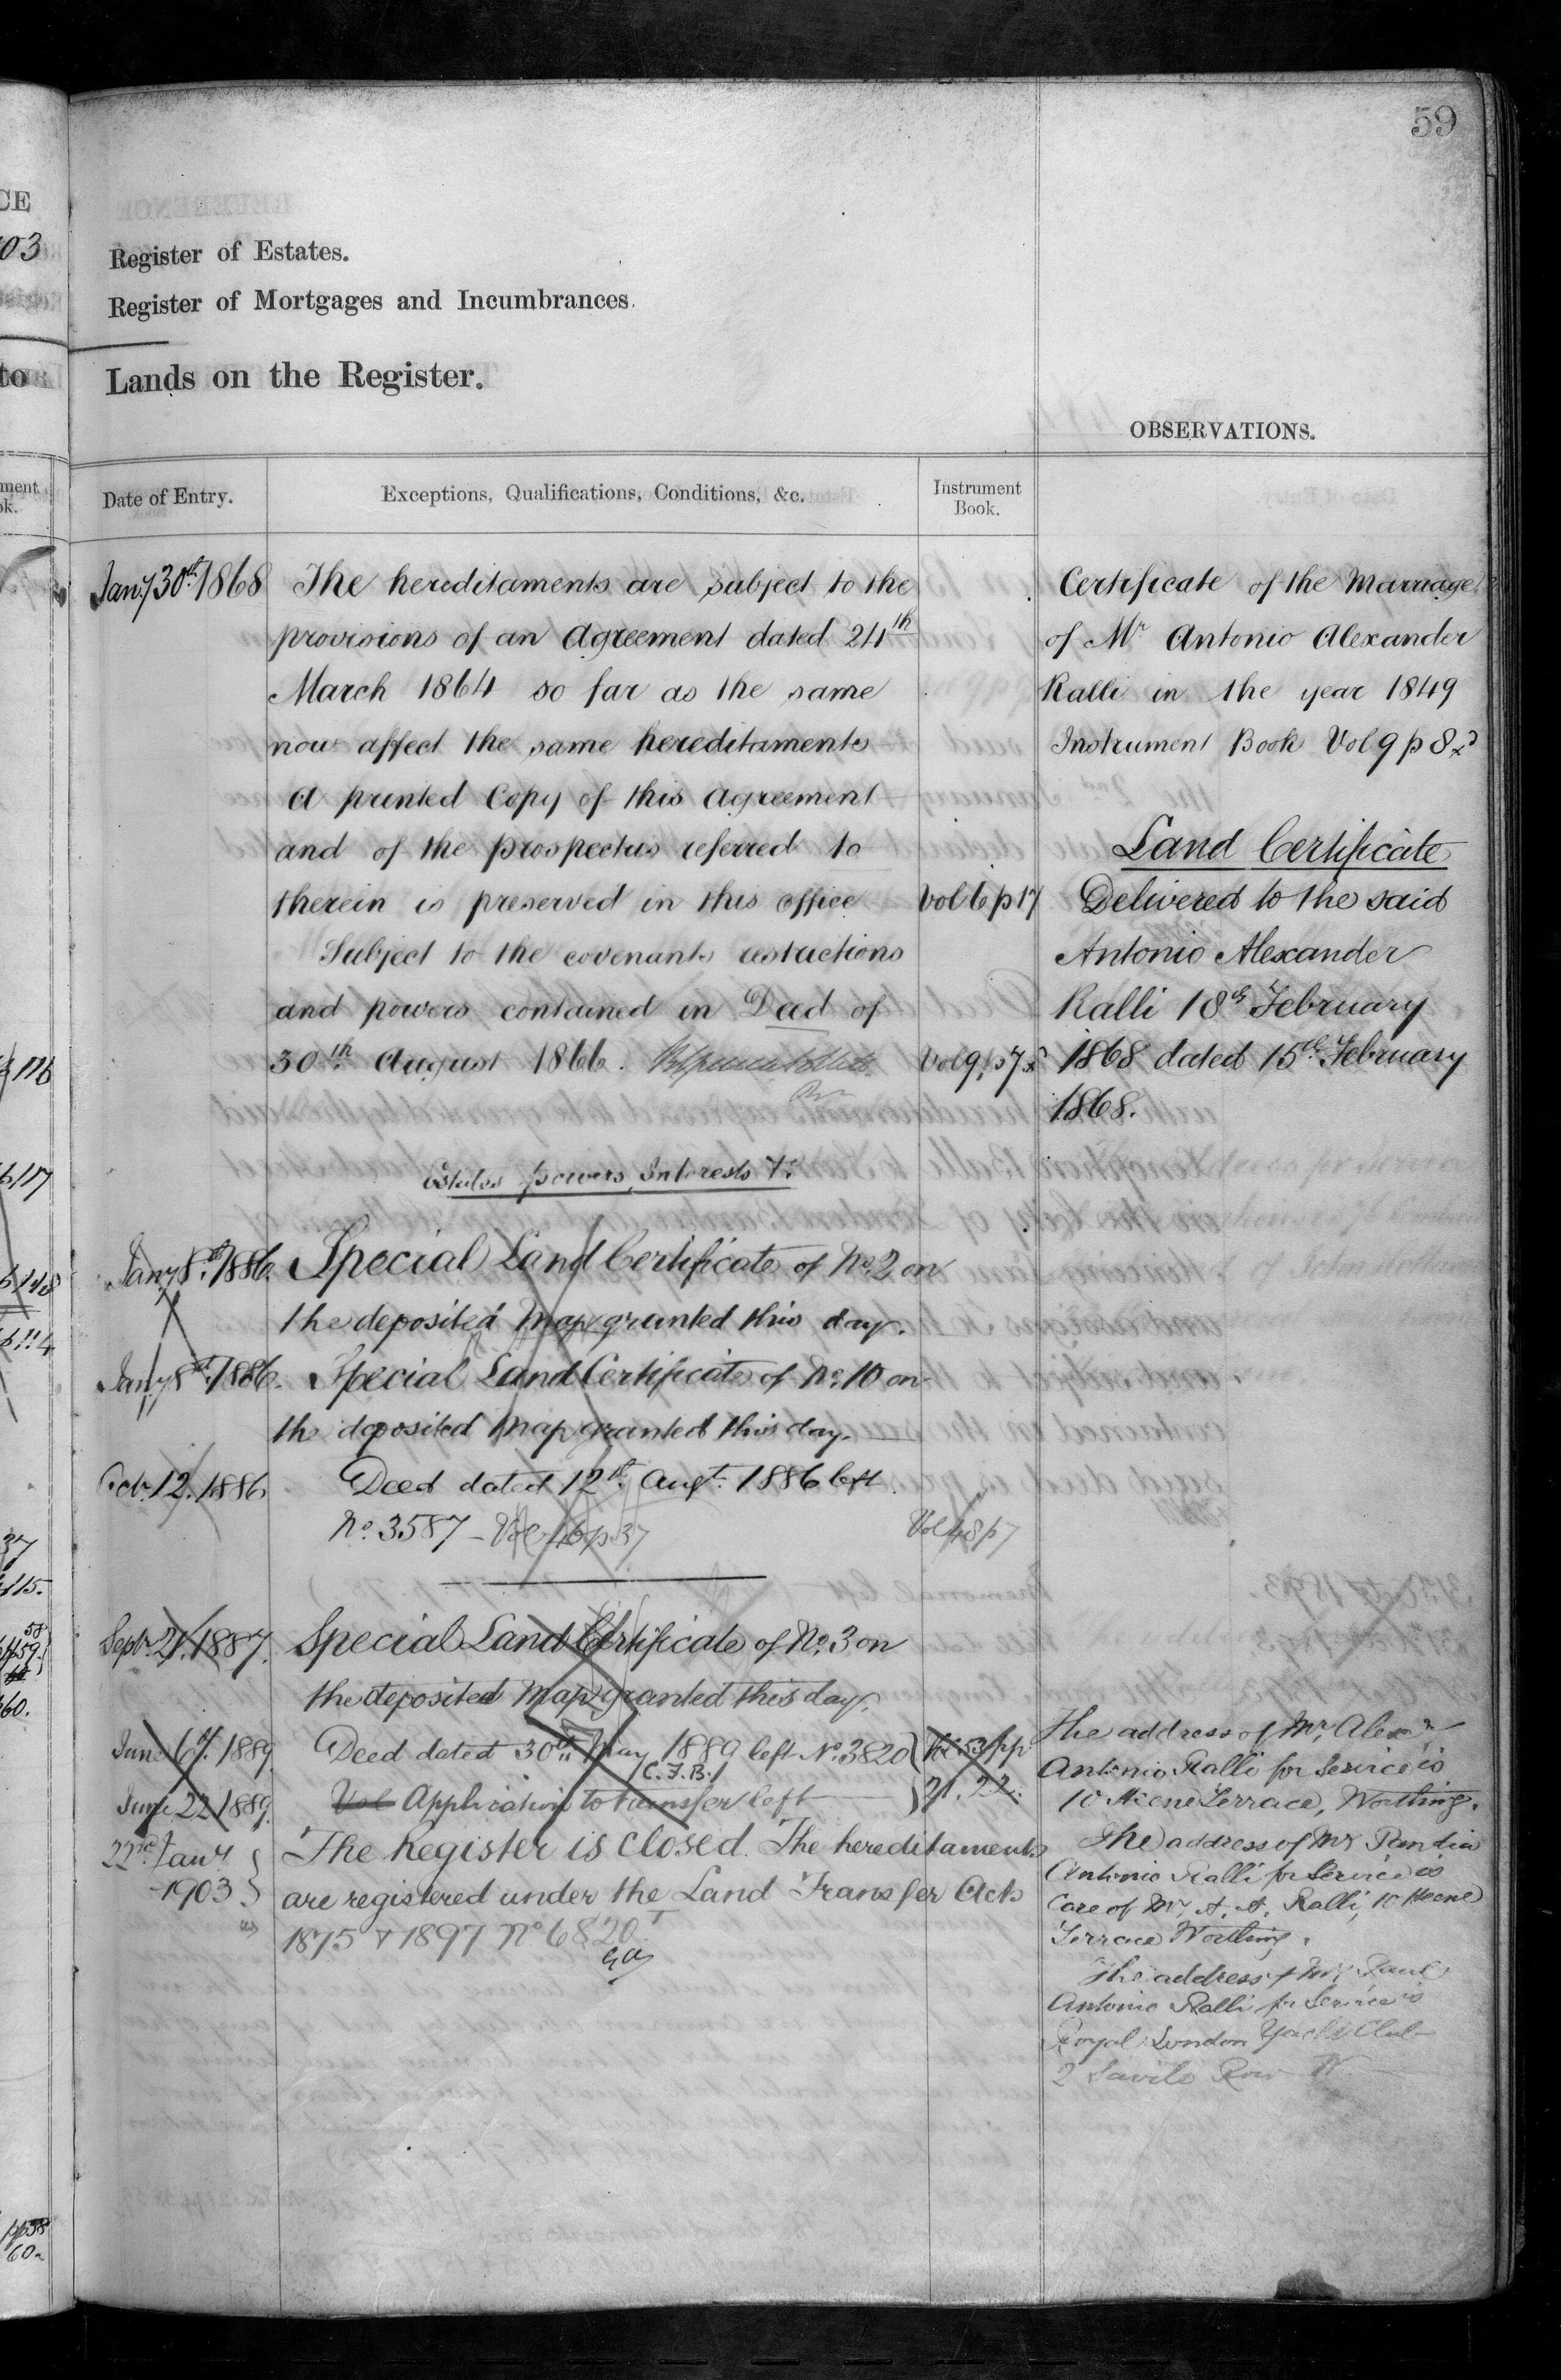 59
Register of Estates.
Register of Mortgages and Incumbrances.
Lands on the Register.
OBSERVATIONS.
Date of Entry.
Exceptions, Qualifications, Conditions, &c.
Instrument
Book.
Jany 30th 1868 The hereditaments are subject to the
provisions of an Agreement dated 24th
March 1864 so far as the same
now affect the same hereditaments
A printed Copy of this Agreement
and of the prospectus referred to
therein is preserved in this office Vol 6 p 17
Subject to the covenants restrictions
and powers contained in Deed of
30th August 1866. Vol 9 p 7
Estates powers, Interests &c.
Jany 8th 1886. Special Land Certificate of No. 2 on
the deposited Map granted this day.
Jany 8th 1886. Special Land Certificate of No. 10 on
the deposited Map granted this day.
Octr. 12. 1886 Deed dated 12th Augt. 1886 left
No. 3587 - Vol 46 p 37 Vol 48 p 7
Septr. 21. 1887. Special Land Certificate of No. 3 on
the deposited Map granted this day.
June 6th. 1889. Deed dated 30th May 1889 left No. 3820 Vol 53 pp
C. F. B.
June 22 1889. Vol Application to transfer left 21. 22.
22nd Jany The Register is Closed. The hereditaments
1903 are registered under the Land Transfer Acts
1875 & 1897 No 6820
Certificate of the Marriage
of Mr Antonio Alexander
Ralli in the year 1849
Instrument Book Vol 9 p 8
Land Certificate
Delivered to the said
Antonio Alexander
Ralli 18th February
1868 dated 15th February
1868.
The address of Mr. Alexr
Antonio Ralli for Service is
10 Heene Terrace, Worthing.
The address of Mr Pandia
Antonio Ralli for Service is
Care of Mr. A. A. Ralli, 10 Heene
Terrace Worthing.
The address of Mr Paul
Antonio Ralli for Service is
Royal London Yacht Club
2 Savile Row W